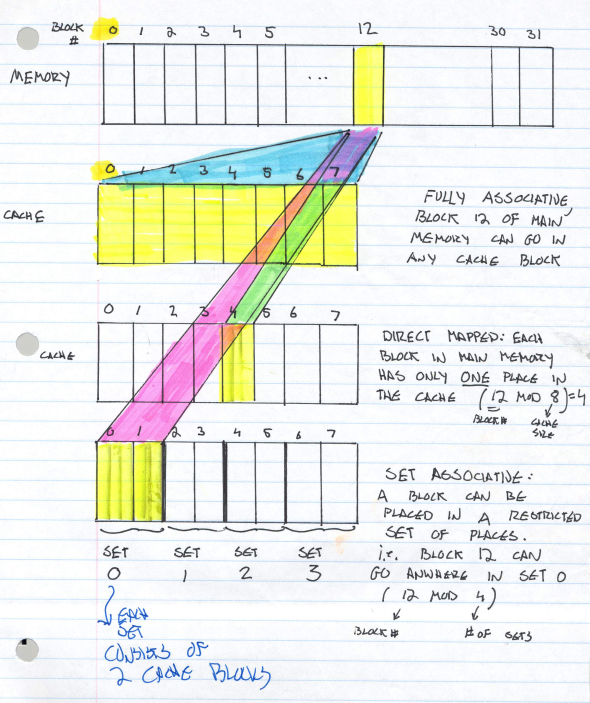 BLOCK
#
0 1 2 3 4 5 12 30 31
MEMORY
...
0 1 2 3 4 5 6 7
CACHE
FULLY ASSOCIATIVE,
BLOCK 12 OF MAIN
MEMORY CAN GO IN
ANY CACHE BLOCK
0 1 2 3 4 5 6 7
CACHE
DIRECT MAPPED: EACH
BLOCK IN MAIN MEMORY
HAS ONLY ONE PLACE IN
THE CACHE (12 MOD 8)=4
BLOCK# CACHE
SIZE
0 1 2 3 4 5 6 7
SET ASSOCIATIVE:
A BLOCK CAN BE
PLACED IN A RESTRICTED
SET OF PLACES.
i.e. BLOCK 12 CAN
GO ANWHERE IN SET 0
(12 MOD 4)
BLOCK# # OF SETS
SET SET SET SET
0 1 2 3
EACH
SET
CONSISTS OF
2 CACHE BLOCKS